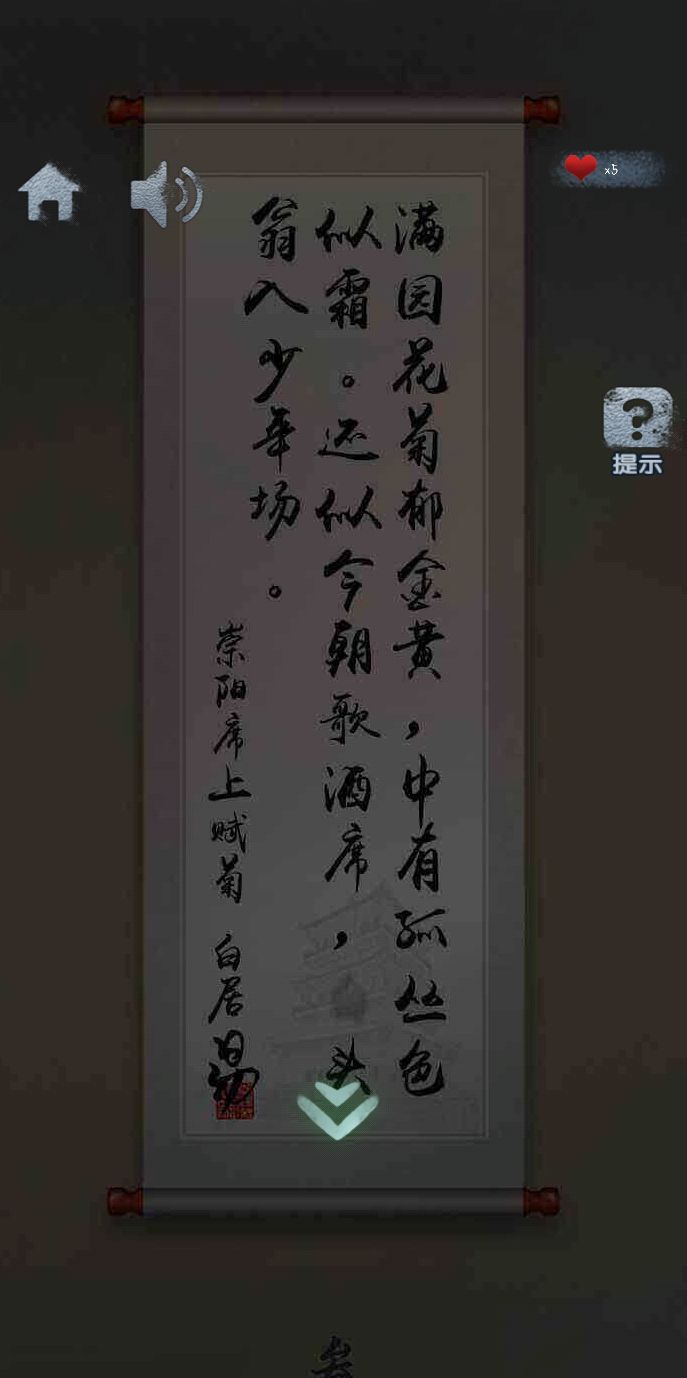 x5
提示
满园花菊郁金黄，中有孤丛色
似霜。还似今朝歌酒席，头
翁入少年场。
崇阳席上赋菊 白居易